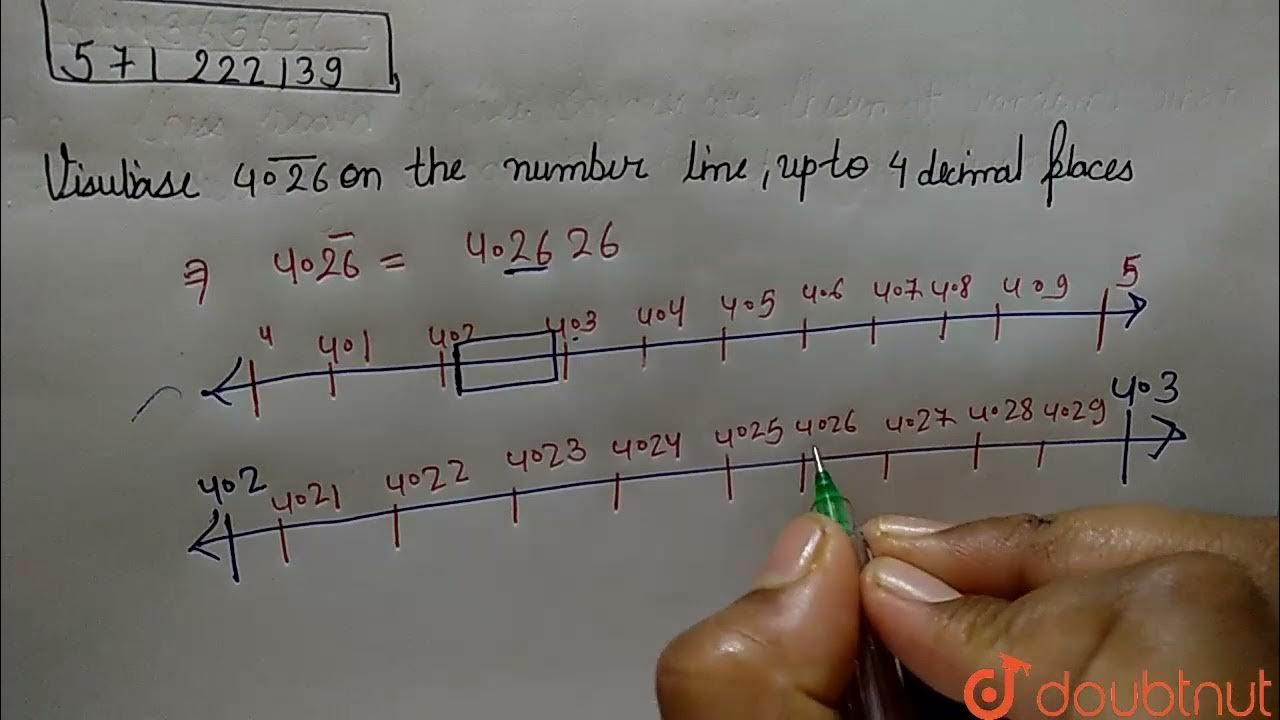 571 222139
Visuliase 4.2̅6̅ on the number line, upto 4 decimal places
⇒ 4.2̅6̅ = 4.26 26
4 4.1 4.2 4.3 4.4 4.5 4.6 4.7 4.8 4.9 5
4.2 4.21 4.22 4.23 4.24 4.25 4.26 4.27 4.28 4.29 4.3
doubtnut